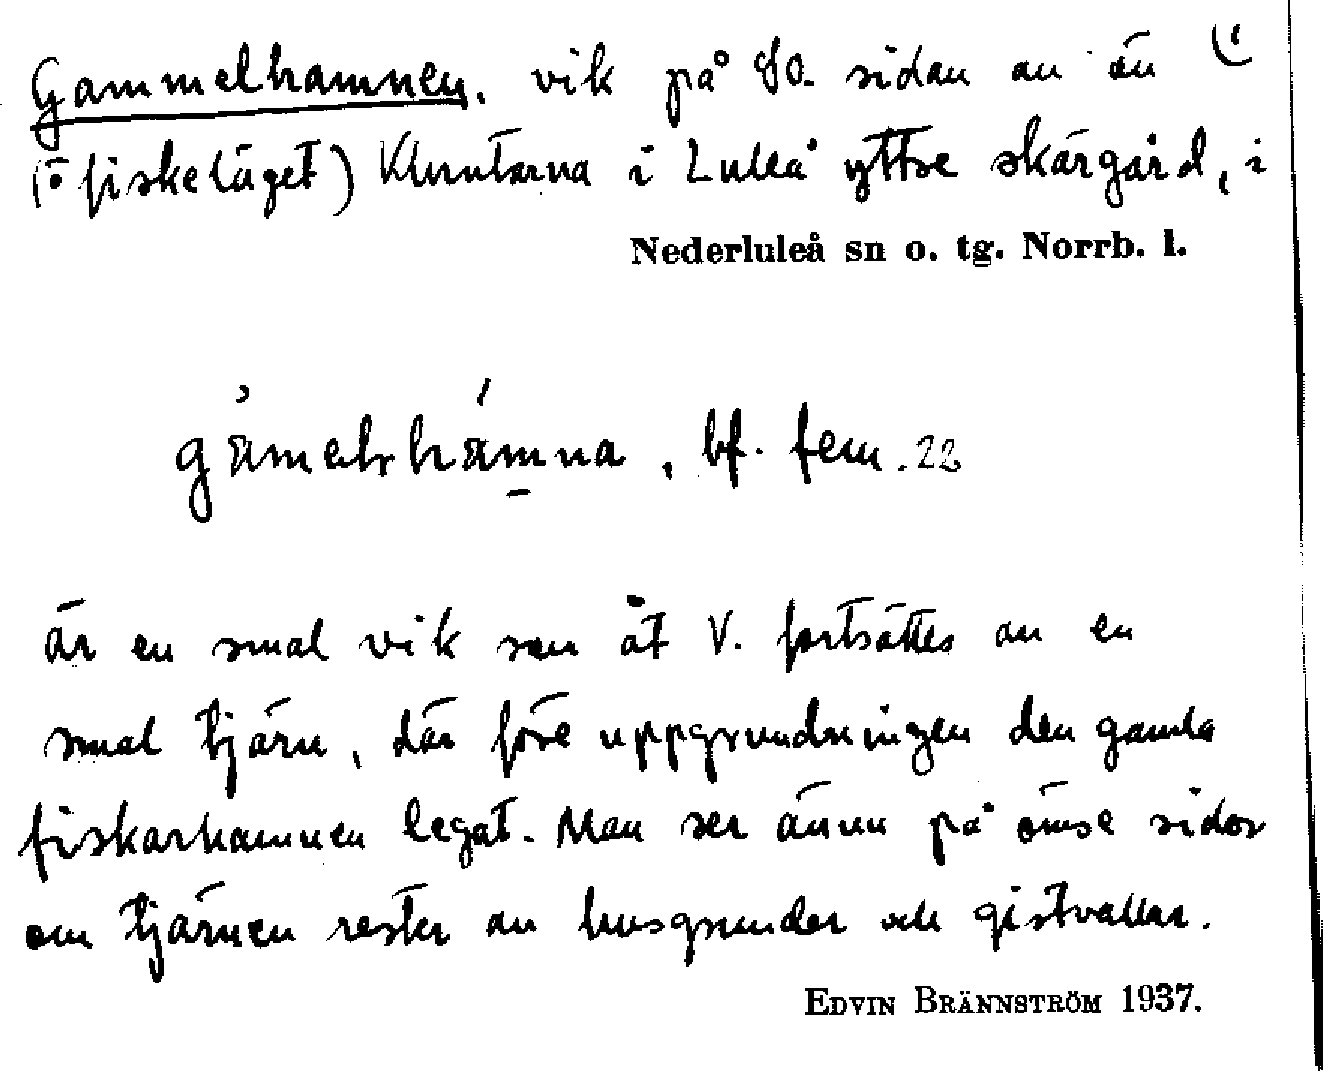 Gammelhamnen, vik på SO. sidan av ön (i
(ö fiskeläget) Kluntarna i Luleå yttre skärgård, i
Nederluleå sn o. tg. Norrb. l.
bf. fem. 22
är en smal vik som åt V. fortsättes av en
smal tjärn, där före uppgrundningen den gamla
fiskarhamnen legat. Man ser ännu på ömse sidor
om tjärnen rester av husgrunder och gistvallar.
EDVIN BRÄNNSTRÖM 1937.